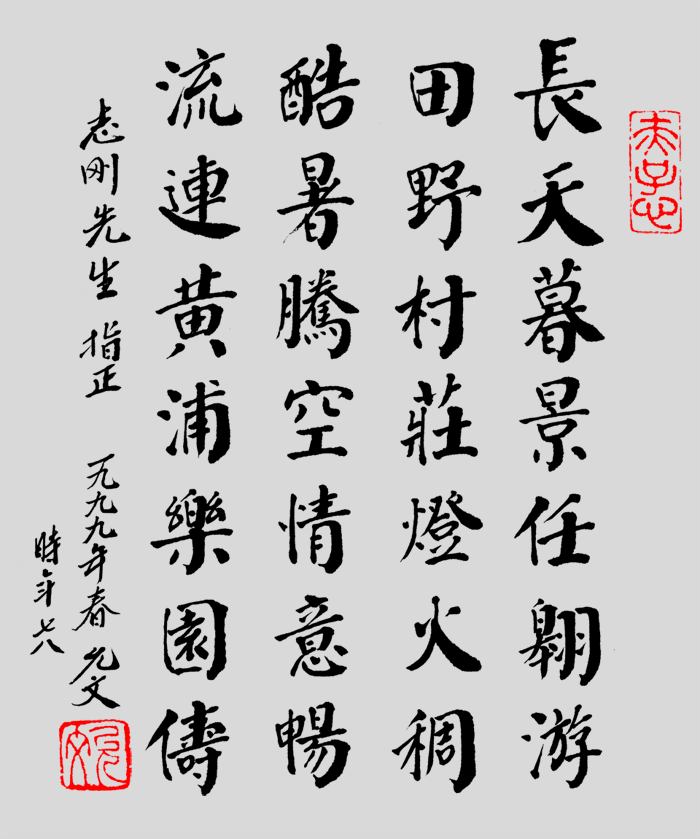 赤子心
長天暮景任翱游
田野村莊燈火稠
酷暑騰空情意暢
流連黄浦樂園儔
志刚先生 指正 一九九九年春 允文
時年七八